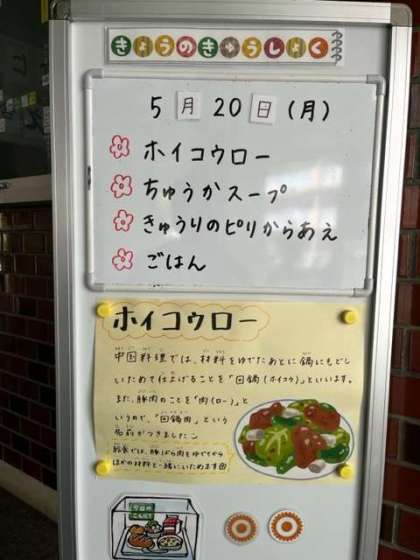 きょうのきゅうしょく
5月20日(月)
ホイコウロー
ちゅうかスープ
きゅうりのピリからあえ
ごはん
ホイコウロー
中国料理では、材料をゆでたあとに鍋にもどし
いためて仕上げることを「回鍋(ホイコウ)」といいます。
また、豚肉のことを「肉(ロー)」と
いうので、「回鍋肉」という
名前がつきました♪
給食では、豚ばら肉をゆでてから
ほかの材料と一緒にいためます
今日の
こんだて